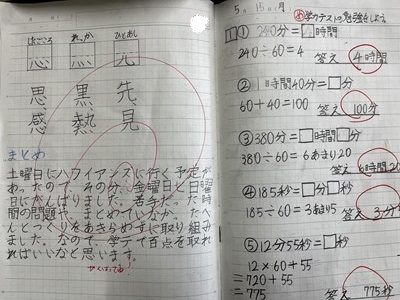 したごころ れっか ひとあし
思 黒 先
感 熱 見
まとめ
土曜日にハワイアンズに行く予定が
あったので、その分、金曜日と日曜
日にがんばりました。苦手だった時
間の問題や、まとめていなか、たへ
んとつくりをあきらめずに取り組み
ました。なので、学テで百点を取れ
ればいいなと思います。
5月15日(月)
学力テストの勉強をしよう。
1 ①240分=□時間
240÷60=4 答え 4時間
②1時間40分=□分
60+40=100 答え 100分
③380分=□時間□分
380÷60=6あまり20
答え 6時間20
④185秒=□分□秒
185÷60=3あまり5 答え 3分
⑤12分55秒=□秒
12×60+55
=720+55
=775 答え 775秒